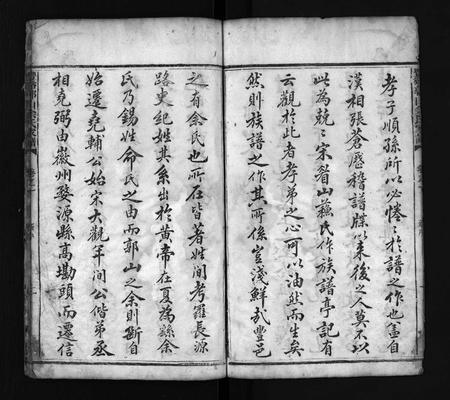 孝子順孫所以必惓惓於譜之作也言自
漢相張蒼歷稽譜牒以來後之人莫不以
此為兢兢宋眉山蘇氏作族譜亭記有
云觀於此者孝弟之心可以油然而生矣
然則族譜之作其所係豈淺鮮哉豐邑
之有余氏也所在皆著姓間考羅長源
路史紀姓其系出於黃帝在夏為繇余
氏乃錫姓命氏之由而郭山之余則斷自
始遷堯輔公始宋大觀年間公偕弟丞
相堯弼由徽州婺源縣高勘頭而遷信